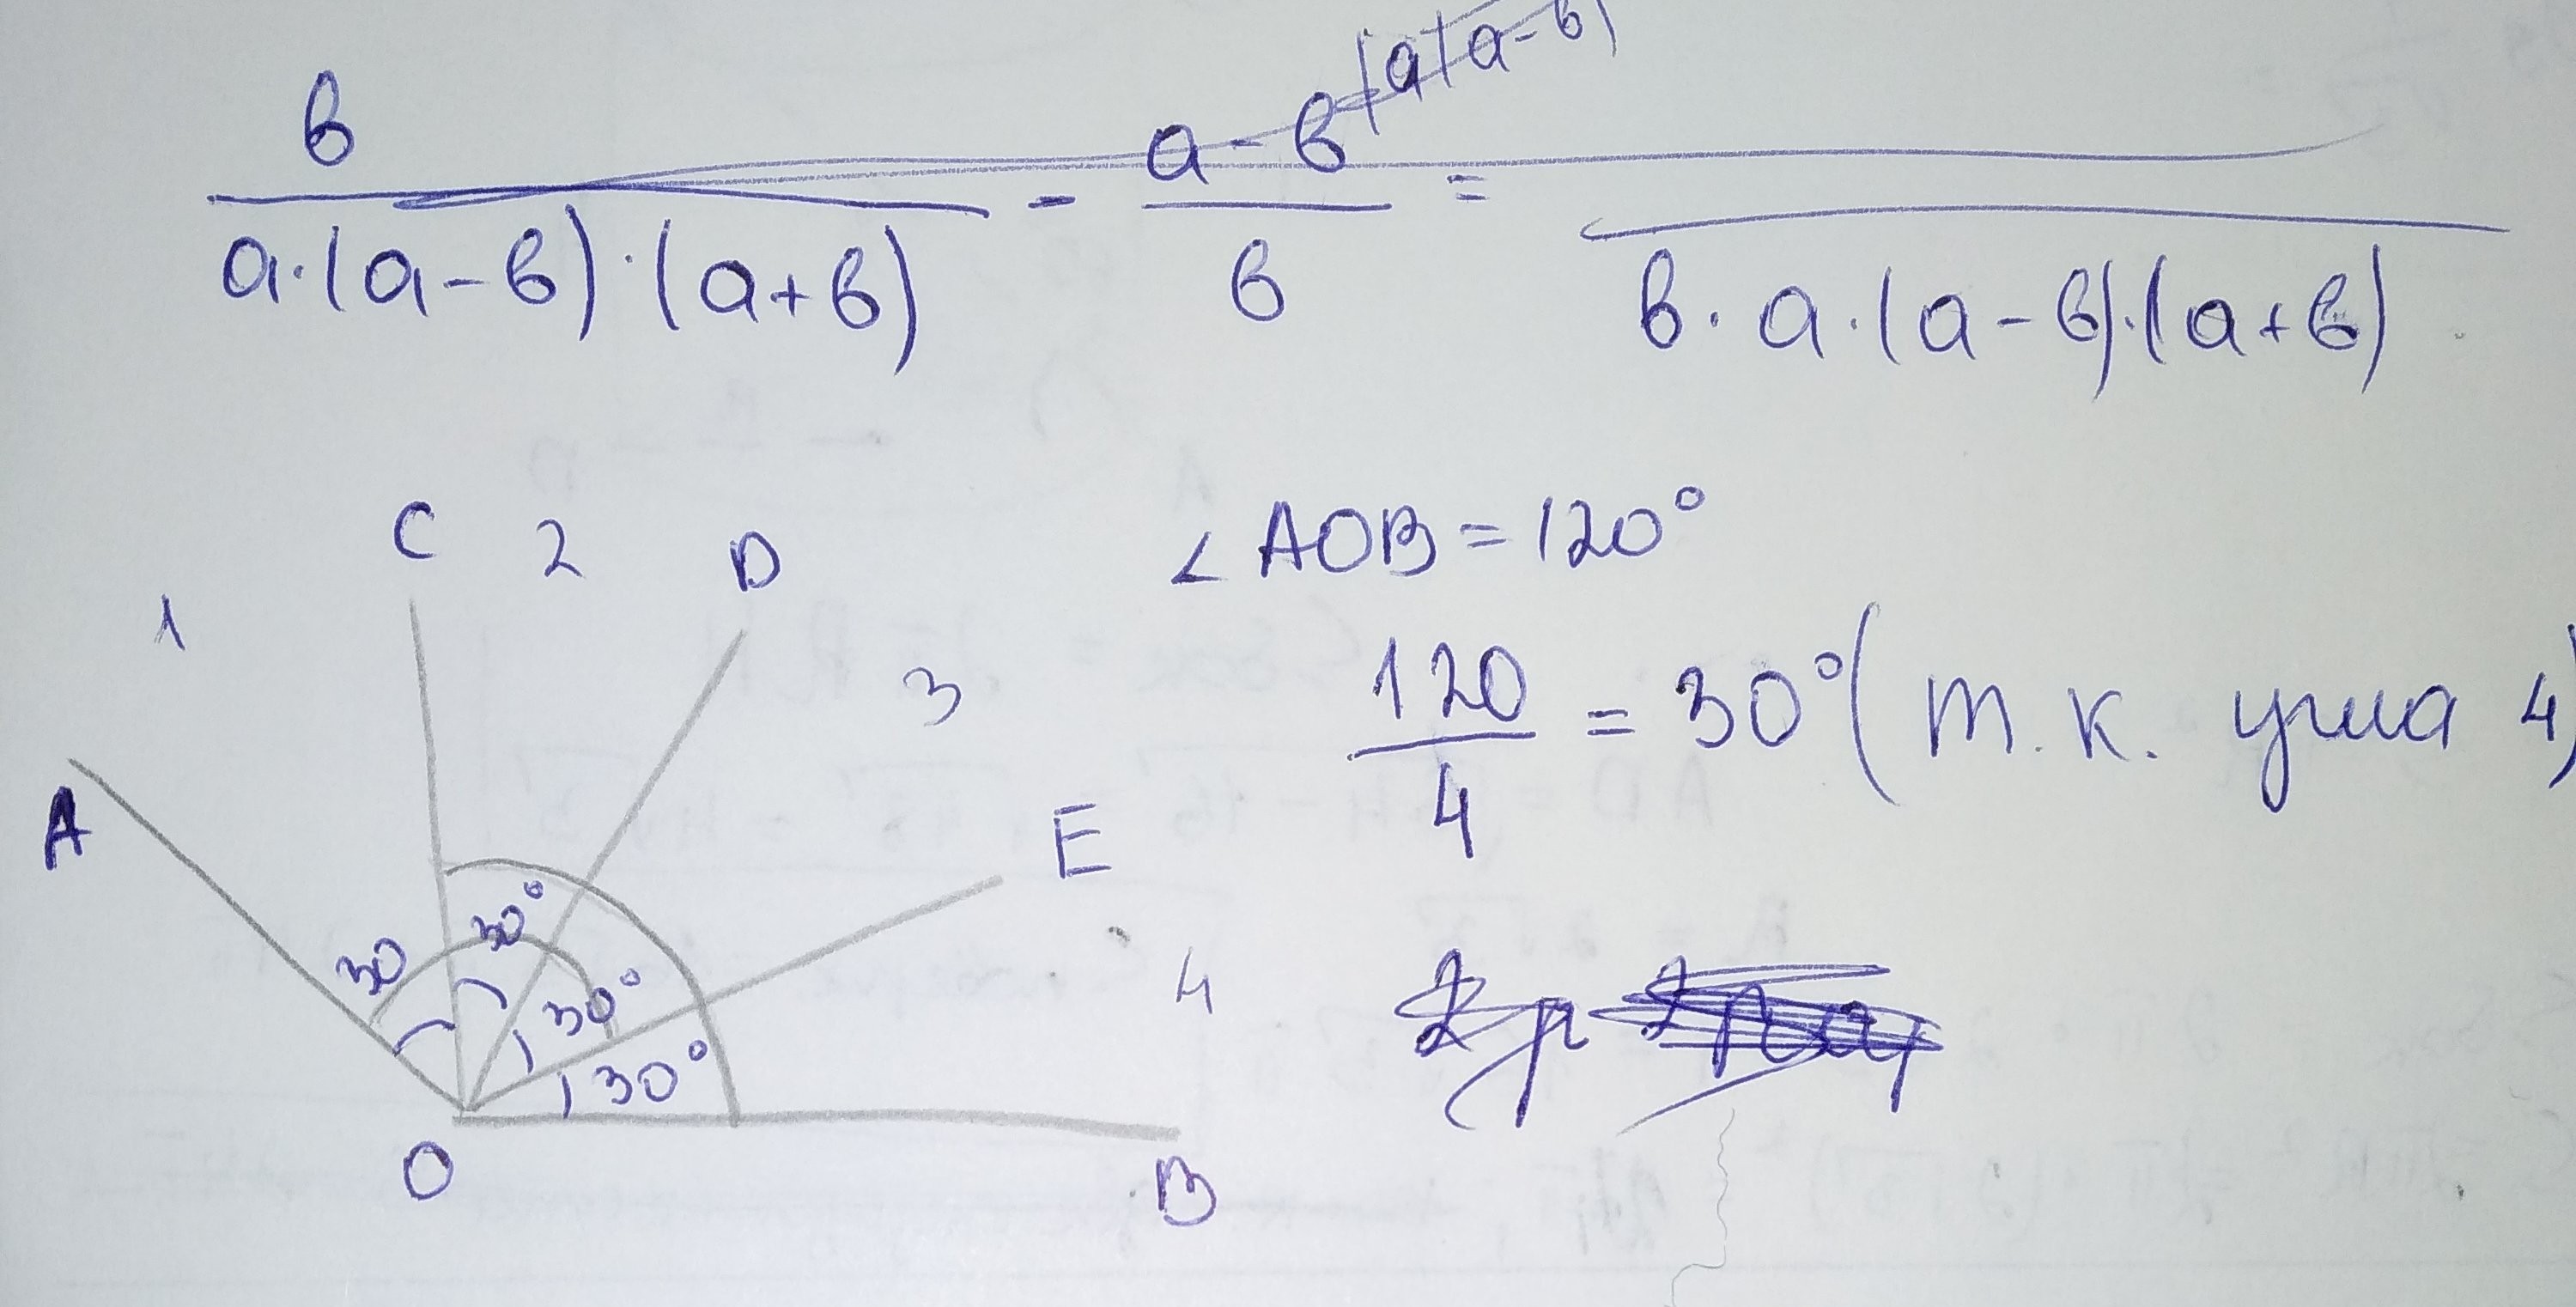 (a(a-в)
в / a·(a-в)·(a+в) - a-в / в = / в·a·(a-в)·(a+в)
C 2 D
1
3
A
E
4
30 30°
30°
30°
O
B
∠AOB=120°
120/4 = 30° (т.к. угла 4)